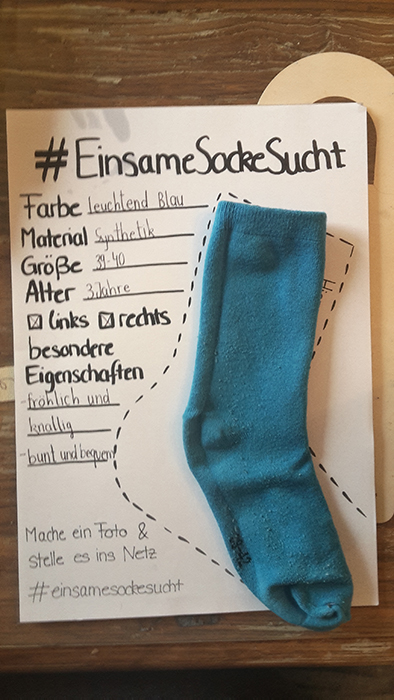 #EinsameSockeSucht
Farbe leuchtend Blau
Material Synthetik
Größe 39-40
Alter 3 Jahre
☒ links ☒ rechts
besondere
Eigenschaften
-fröhlich und
knallig
-bunt und bequem
Mache ein Foto &
stelle es ins Netz
#einsamesockesucht